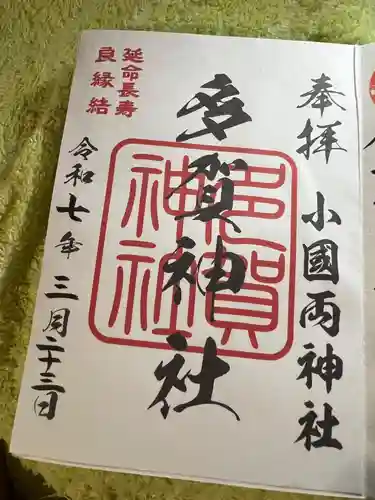 奉拝
小國両神社
多賀神社
多賀神社
延命長寿
良縁結
令和七年三月二十三日